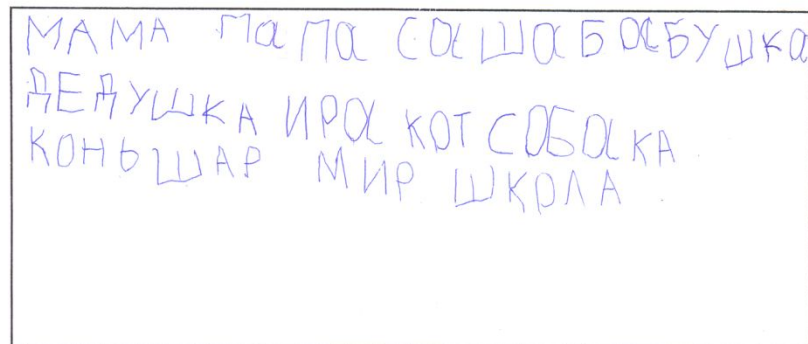 МАМА ПаПа СаШаБаБУШКа
ДЕДУШКА ИРа КОТ СОБаКА
КОНЬ ШАР МИР ШКОЛА